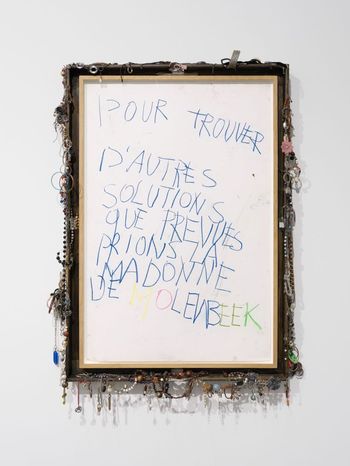 POUR TROUVER
D'AUTRES
SOLUTIONS
QUE PREVUES
PRIONS LA
MADONNE
DE MOLENBEEK